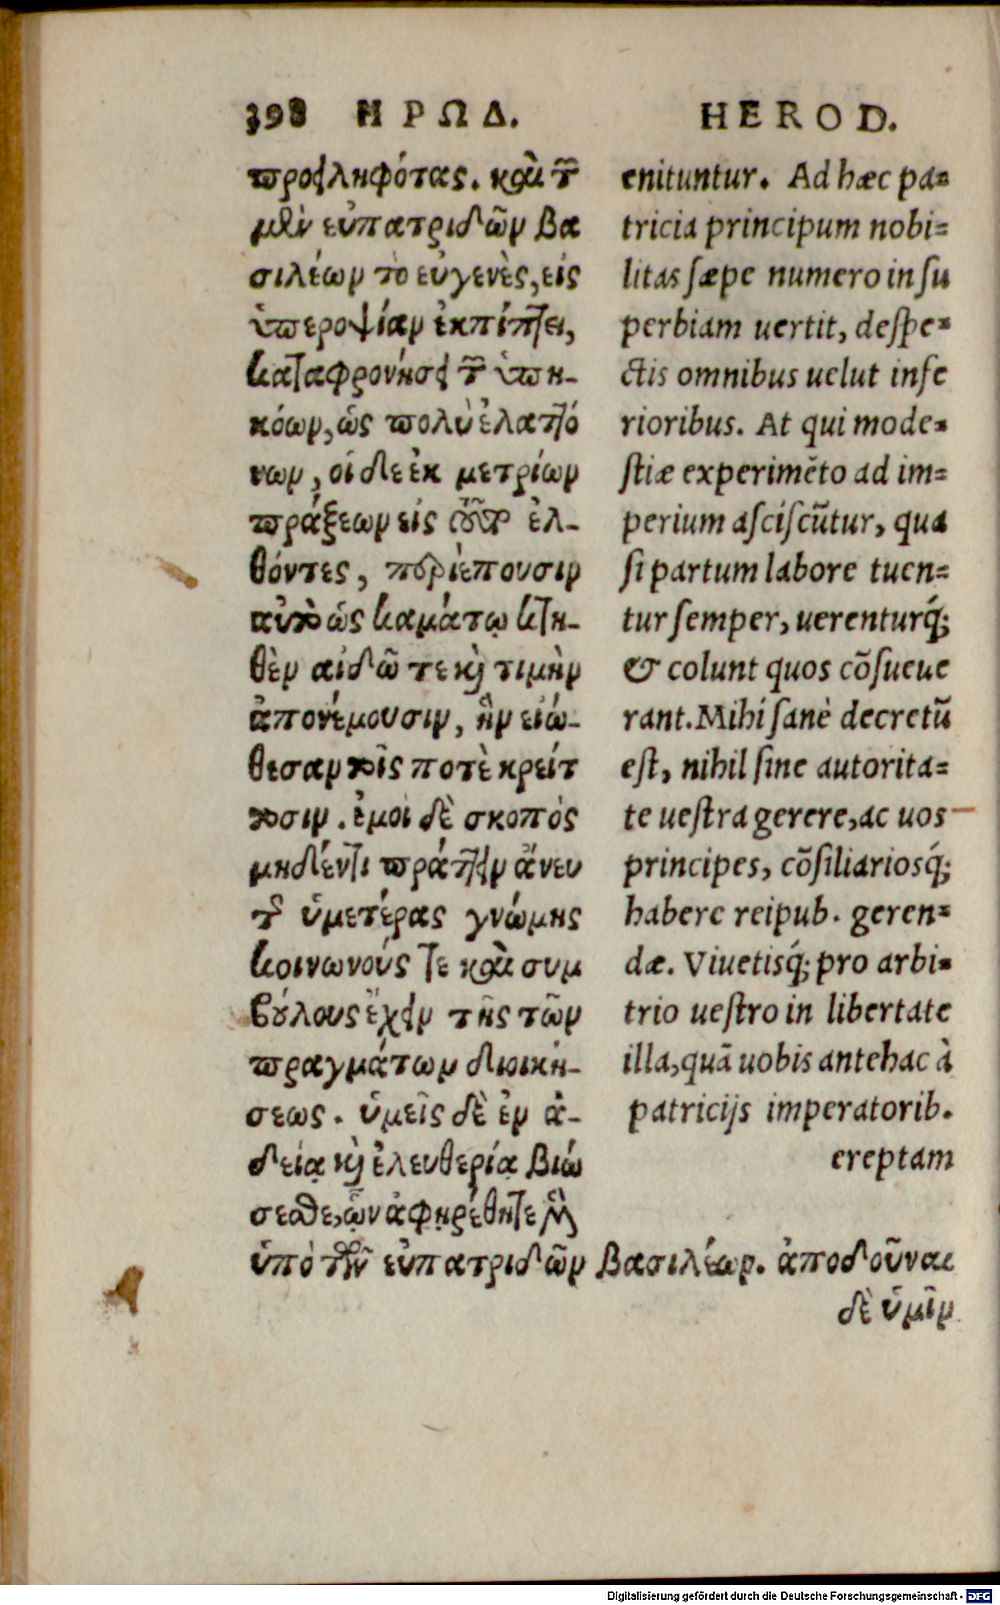 398 ΗΡΩΔ.
προειληφότας. καὶ τῶν
μὲν εὐπατριδῶν βα
σιλέων τὸ εὐγενὲς, εἰς
ὑπεροψίαν ἐκπίπτει,
καταφρονήσει τῶν ὑπη-
κόων, ὡς πολὺ ἐλαττό
νων, οἱ δὲ ἐκ μετρίων
πράξεων εἰς τοῦτο ἐλ-
θόντες, περιέπουσιν
αὐτὸ ὡς καμάτῳ κτη-
θὲν αἰδῶ τε καὶ τιμὴν
ἀπονέμουσιν, ἣν εἰώ-
θεσαν τοῖς ποτὲ κρείτ
τοσιν. ἐμοὶ δὲ σκοπὸς
μηδέν τι πράττειν ἄνευ
τῆς ὑμετέρας γνώμης
κοινωνούς τε καὶ συμ
βούλους ἔχειν τῆς τῶν
πραγμάτων διοική-
σεως. ὑμεῖς δὲ ἐν ἀ-
δείᾳ καὶ ἐλευθερίᾳ βιώ
σεσθε, ὧν ἀφῃρέθητε μὲν
ὑπὸ τῶν εὐπατριδῶν βασιλέων. ἀποδοῦναι
δὲ ὑμῖν
HEROD.
enituntur. Ad hæc pa=
tricia principum nobi=
litas sæpe numero in su
perbiam uertit, despe=
ctis omnibus uelut infe
rioribus. At qui mode=
stiæ experimẽto ad im=
perium asciscũtur, qua
si partum labore tuen=
tur semper, uerenturq́;
& colunt quos cõsueue
rant. Mihi sanè decretũ
est, nihil sine autorita=
te uestra gerere, ac uos
principes, cõsiliariosq́;
habere reipub. geren=
dæ. Viuetisq́; pro arbi=
trio uestro in libertate
illa, quã uobis antehac à
patricijs imperatorib.
ereptam
Digitalisierung gefördert durch die Deutsche Forschungsgemeinschaft - DFG